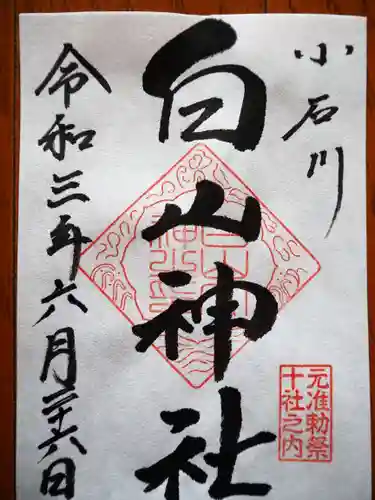 小石川
白山神社
令和三年六月二十六日
元准勅祭
十社之内